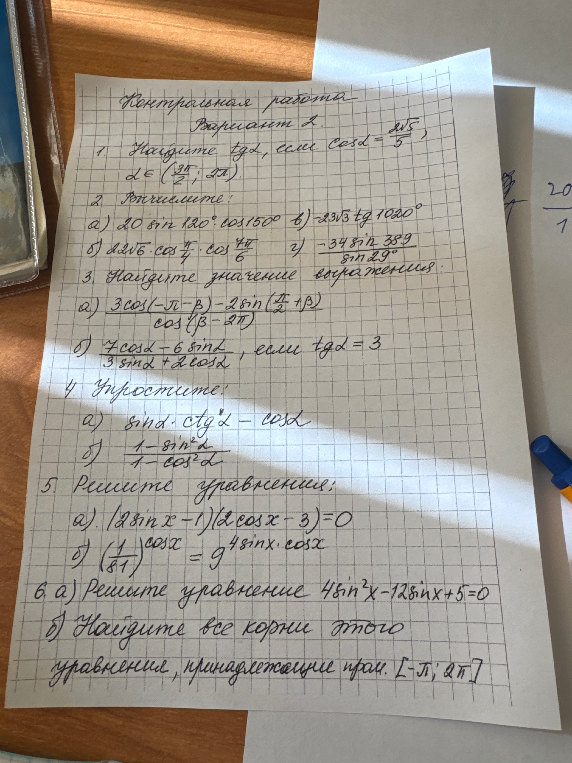 Контрольная работа
Вариант 2.
1. Найдите tgα, если cosα = 2√5/5,
α ∈ (3π/2; 2π).
2. Вычислите:
а) 20 sin 120° cos 150° в) -23√3 tg 1020°
б) 22√6 · cos π/4 · cos 7π/6 г) -34 sin 389/sin 29°
3. Найдите значение выражения.
а) (3cos(-π-β) - 2sin(π/2+β))/cos(β-2π)
б) (7cosα - 6sinα)/(3sinα + 2cosα), если tgα = 3
4 Упростите:
а) sinα · ctgα - cosα
б) (1 - sin²α)/(1 - cos²α)
5 Решите уравнения:
а) (2sinx - 1)(2cosx - 3) = 0
б) (1/81)^cosx = 9^(4sinx·cosx)
6. а) Решите уравнение 4sin²x - 12sinx + 5 = 0
б) Найдите все корни этого
уравнения, принадлежащие пром. [-π; 2π]
20
1